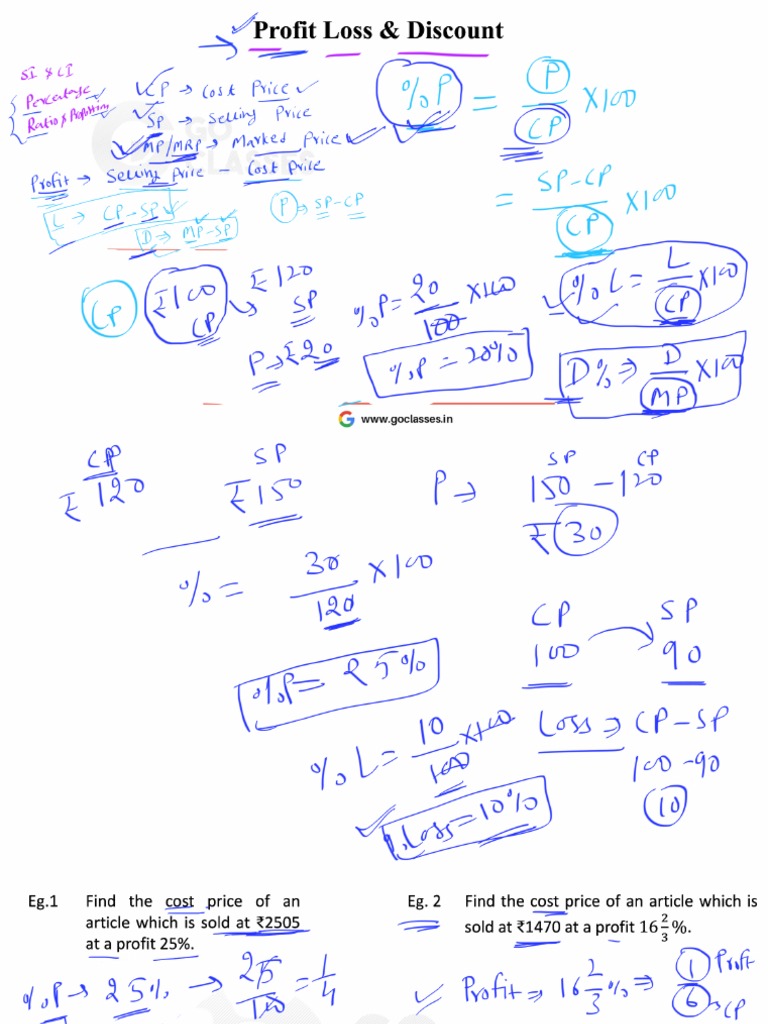 Profit Loss & Discount
SI & CI
Percentage
Ratio & Proportion
CP → Cost Price
SP → Selling Price
MP/MRP → Marked Price
Profit → Selling Price - Cost Price
L → CP-SP
D → MP-SP
P → SP-CP
%P = P/CP ×100
= SP-CP/CP ×100
GO
CLASSES
CP
₹100 CP
₹120 SP
P → ₹20
%P = 20/100 ×100
%P = 20%
%L = L/CP ×100
D% ⇒ D/MP ×100
www.goclasses.in
CP SP
₹120 ₹150
P → SP 150 - CP 120
₹ 30
% = 30/120 ×100
%P = 25%
CP SP
100 90
Loss ⇒ CP-SP
100-90
10
%L = 10/100 ×100
%Loss = 10%
Eg.1 Find the cost price of an
article which is sold at ₹2505
at a profit 25%.
%P → 25% → 25/100 = 1/4
Eg. 2 Find the cost price of an article which is
sold at ₹1470 at a profit 16 2/3 %.
Profit ⇒ 16 2/3 % ⇒ 1 Profit
6 → CP